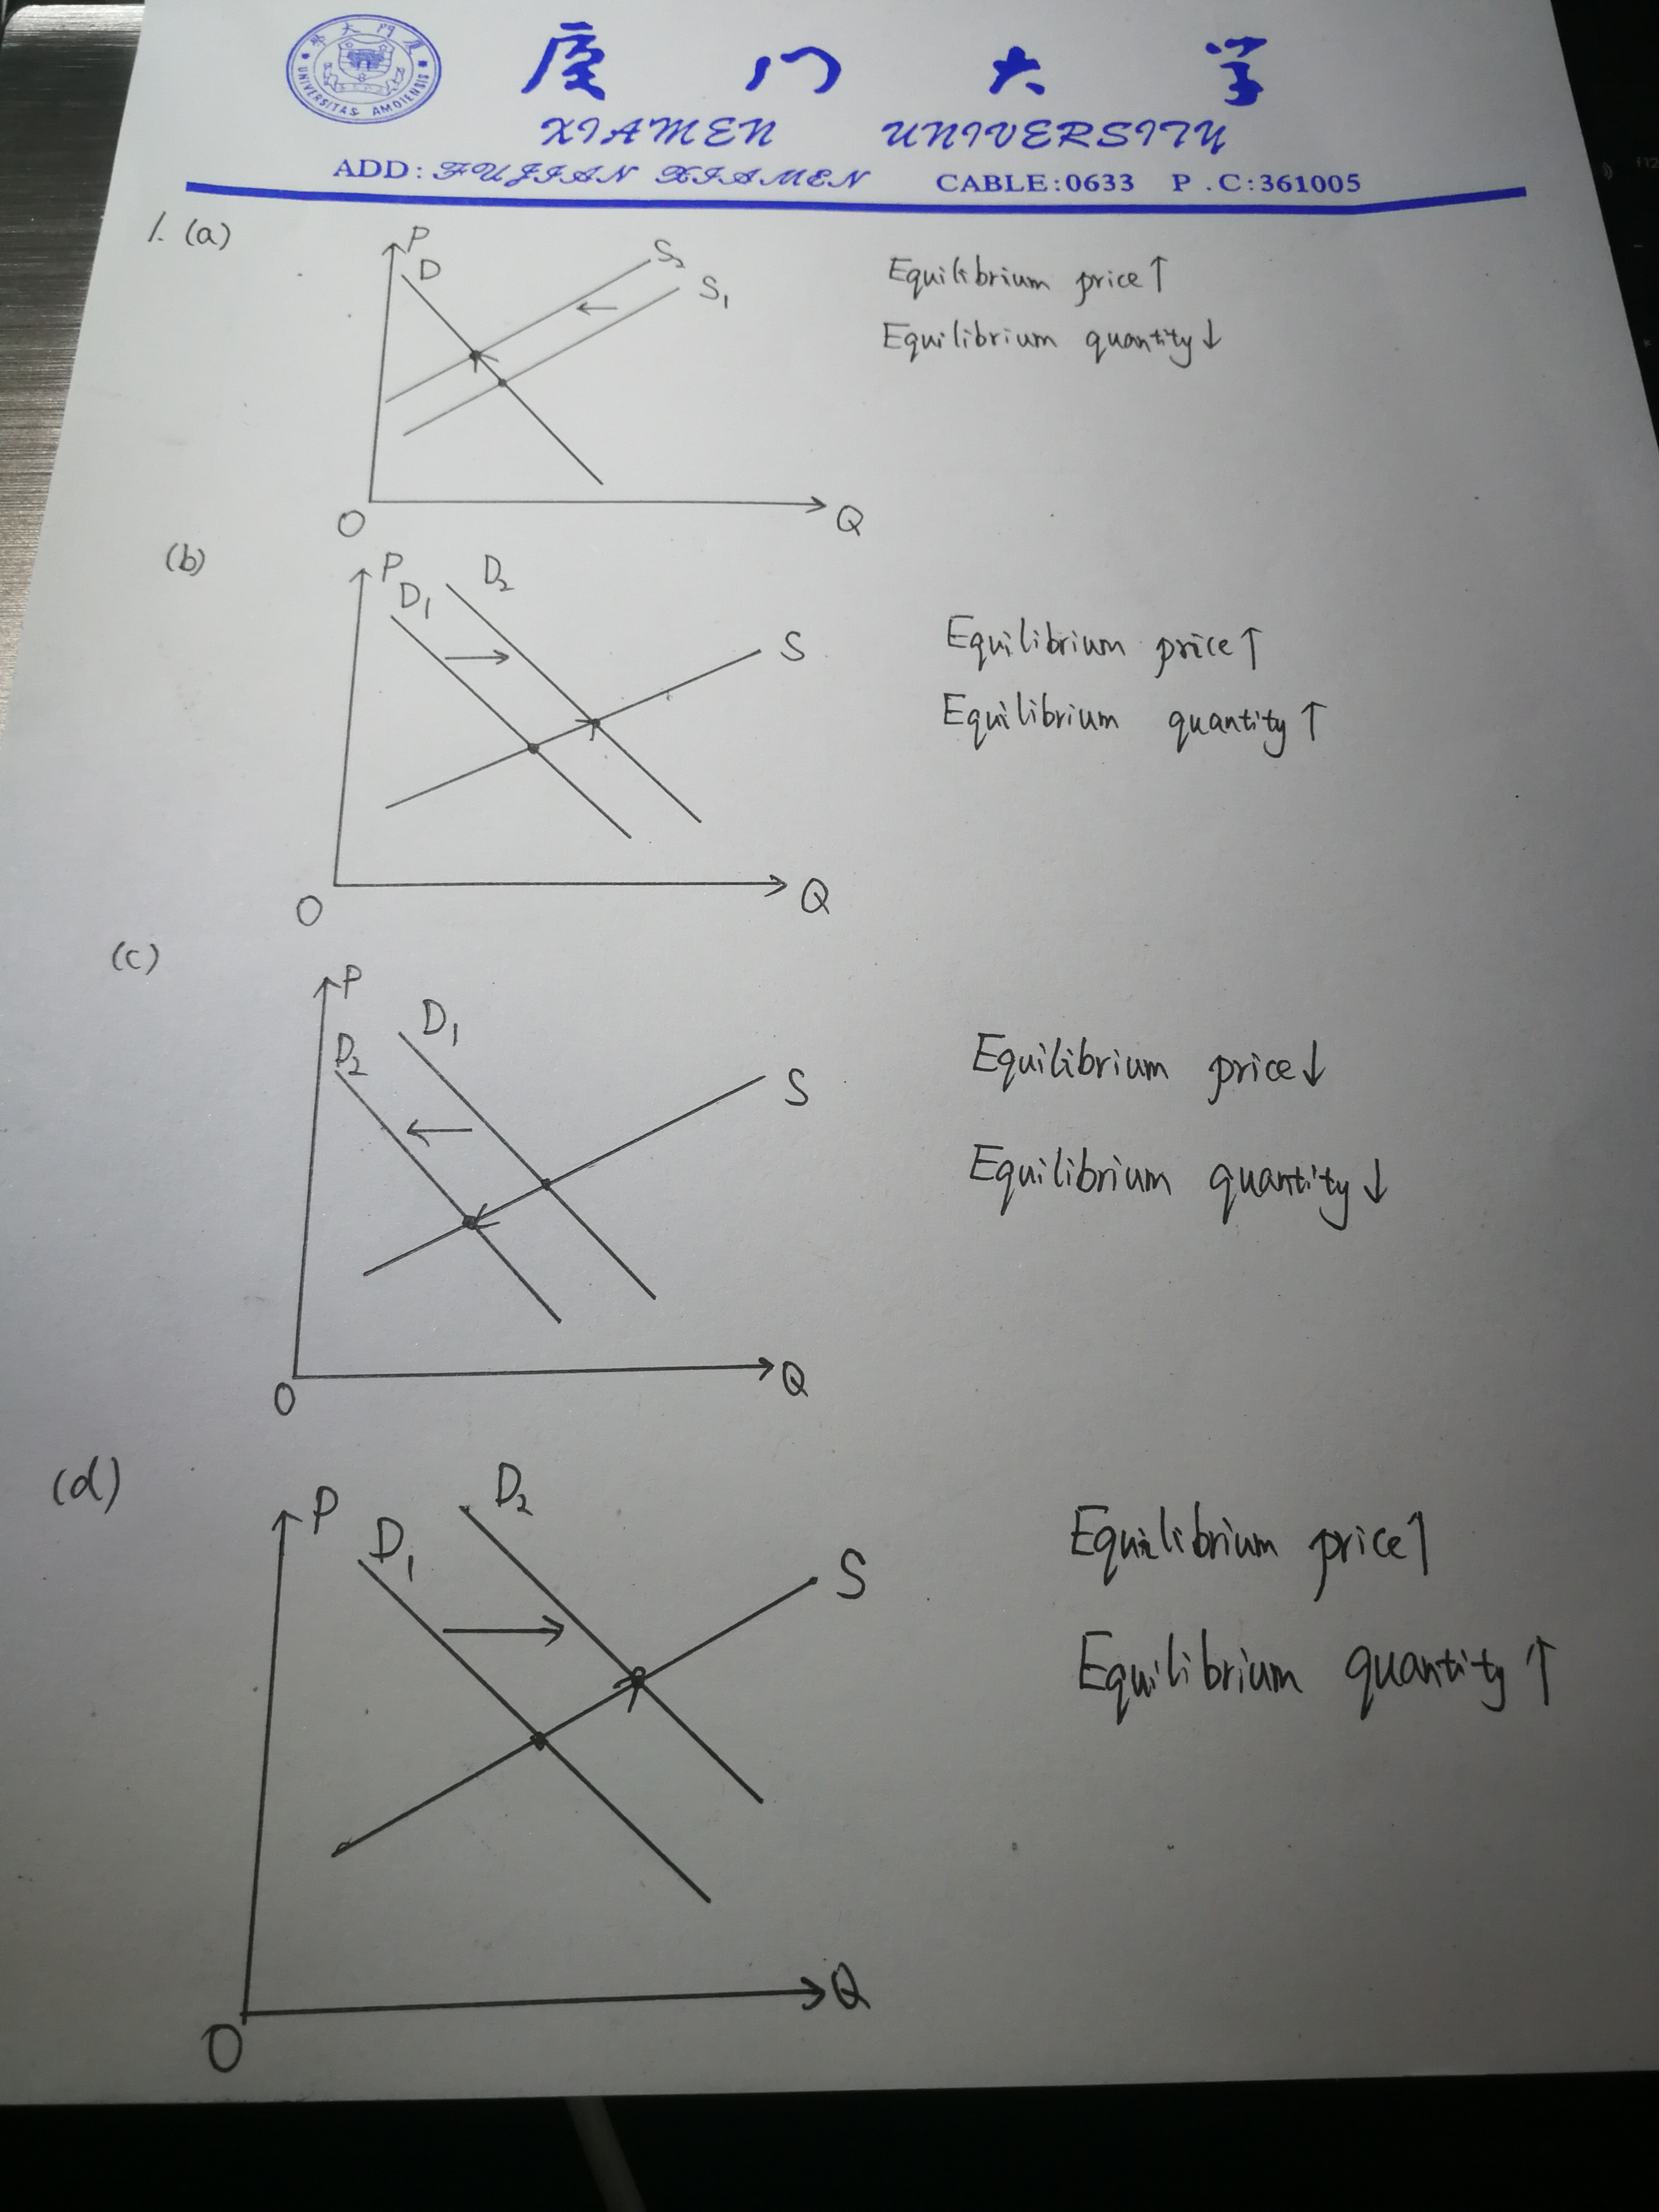 厦门大学
XIAMEN UNIVERSITY
ADD: FUJIAN XIAMEN CABLE:0633 P.C:361005
學大門廈
UNIVERSITAS AMOIENSIS
1. (a)
P
D
S₂
S₁
O
Q
Equilibrium price↑
Equilibrium quantity↓
(b)
P
D₁
D₂
S
O
Q
Equilibrium price↑
Equilibrium quantity↑
(c)
P
D₂
D₁
S
O
Q
Equilibrium price↓
Equilibrium quantity↓
(d)
P
D₁
D₂
S
O
Q
Equilibrium price↑
Equilibrium quantity↑